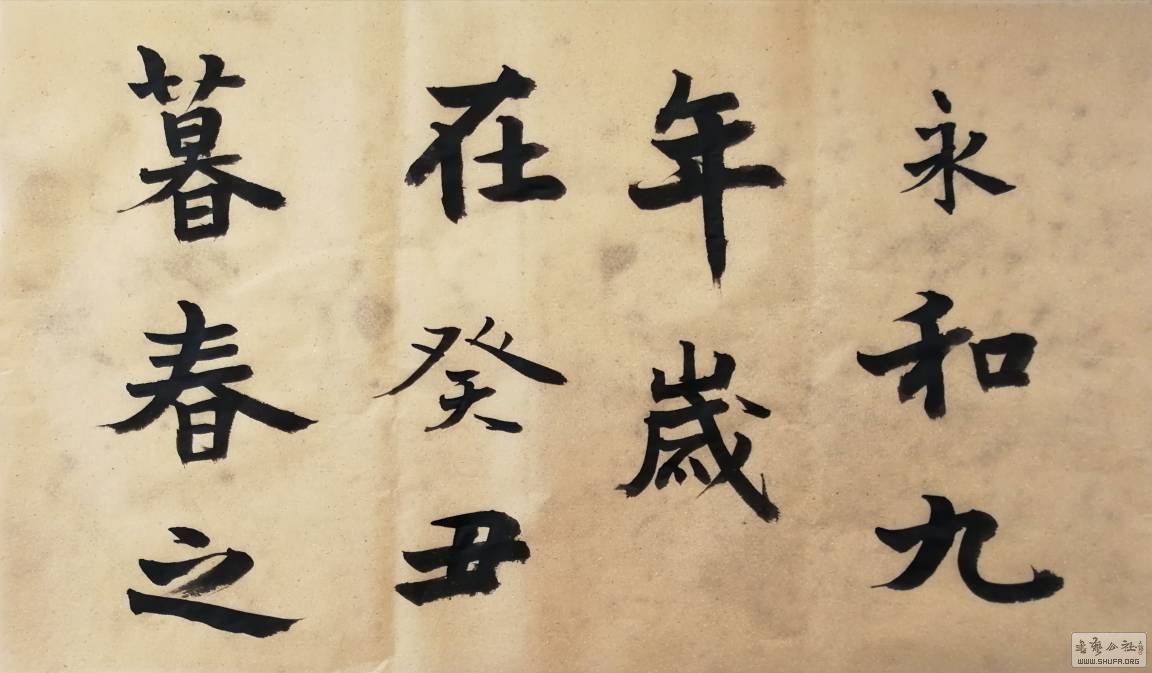 永和九
年歲
在癸丑
暮春之
書藝公社
WWW.SHUFA.ORG